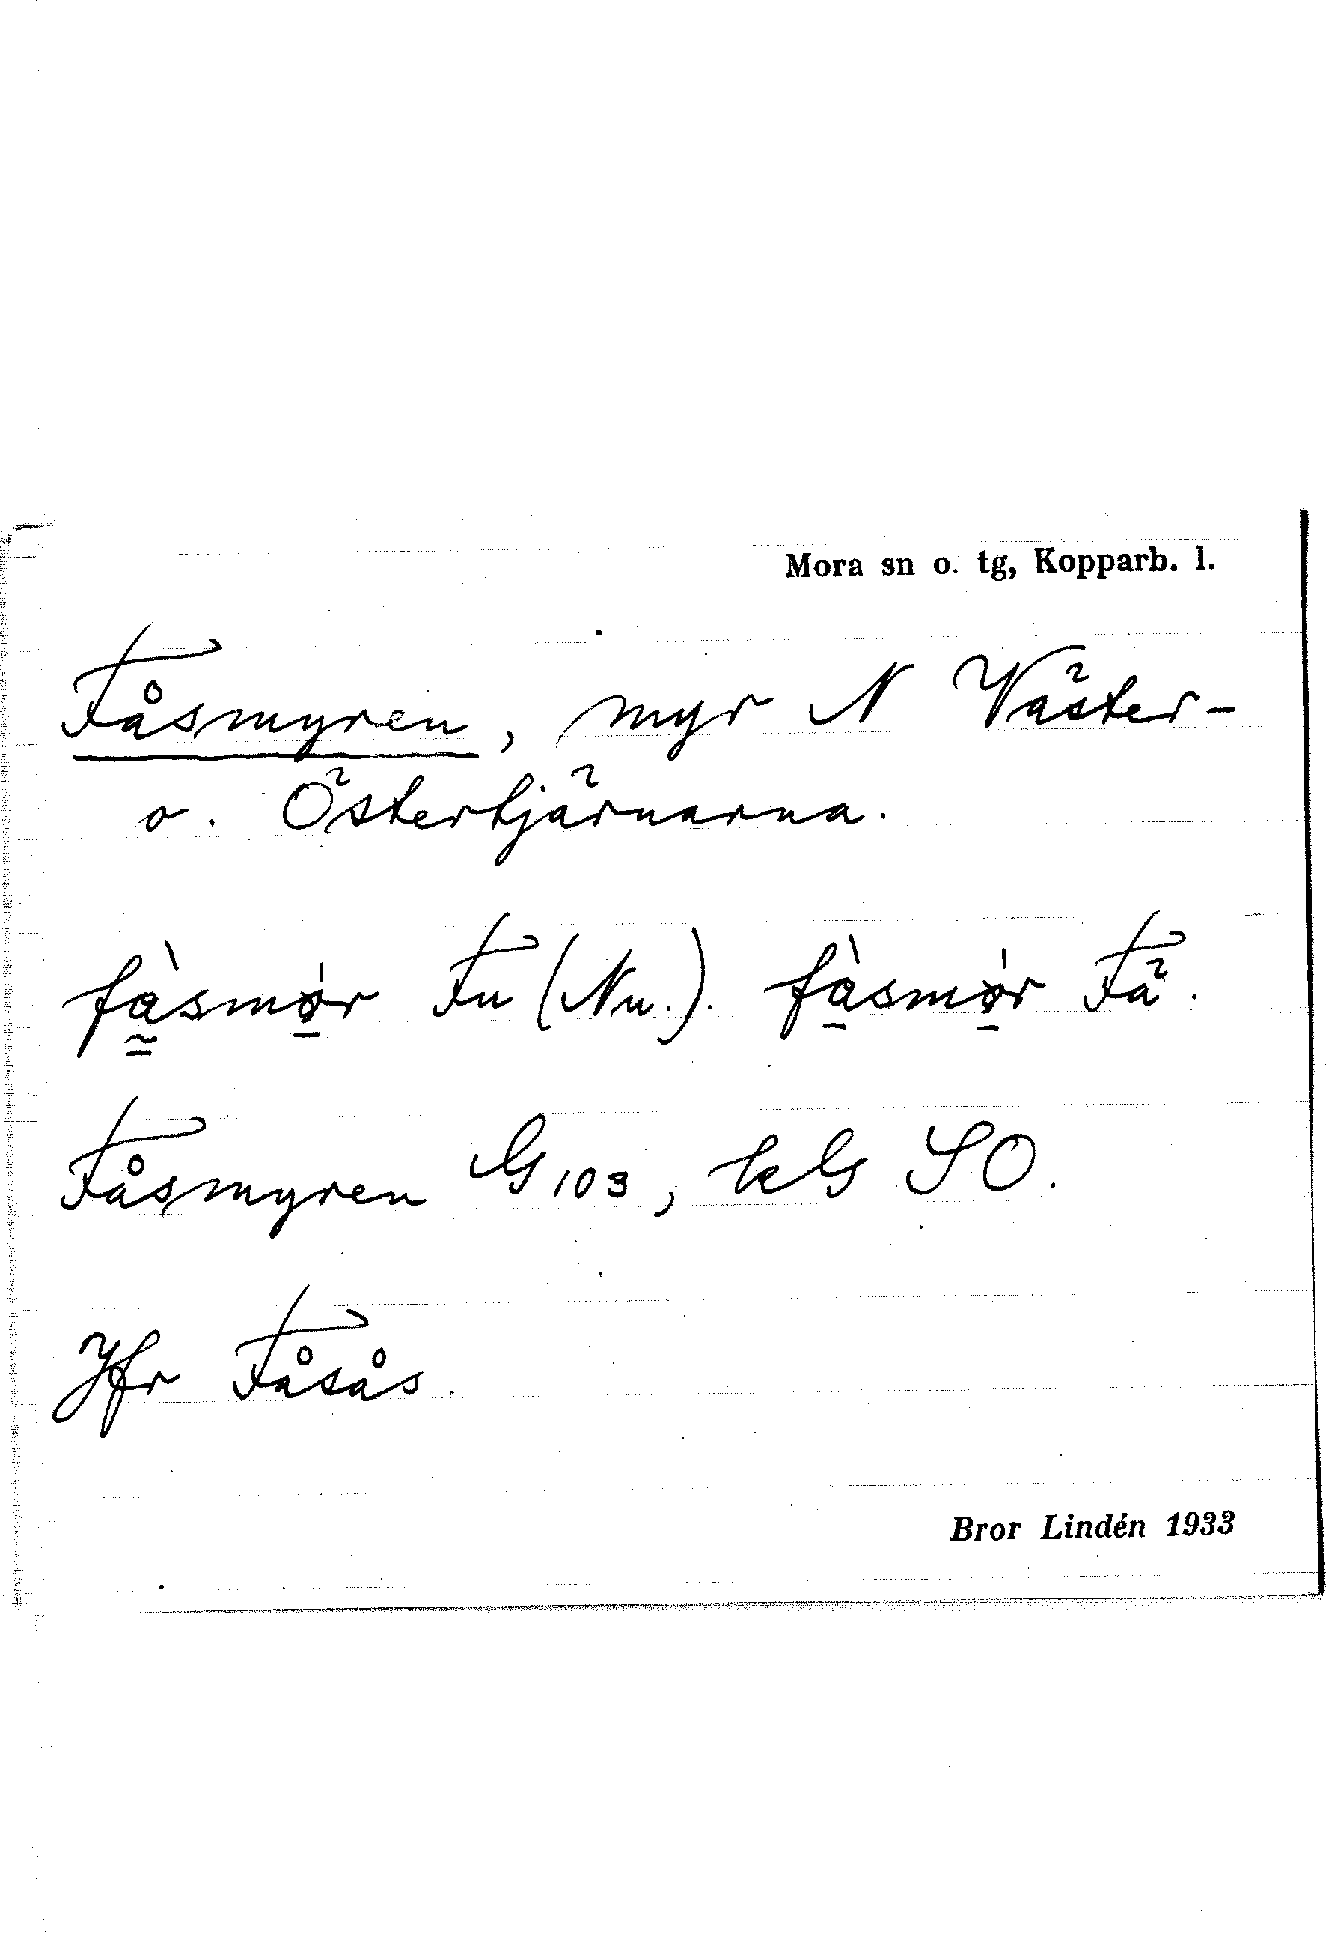 Mora sn o. tg, Kopparb. l.
Fåsmyren, myr N Väster-
o. Östertjärnarna.
fàsmør Fu (Nu.). fàsmør Fä.
Fåsmyren G103, kG SO.
Jfr Fåsås.
Bror Lindén 1933